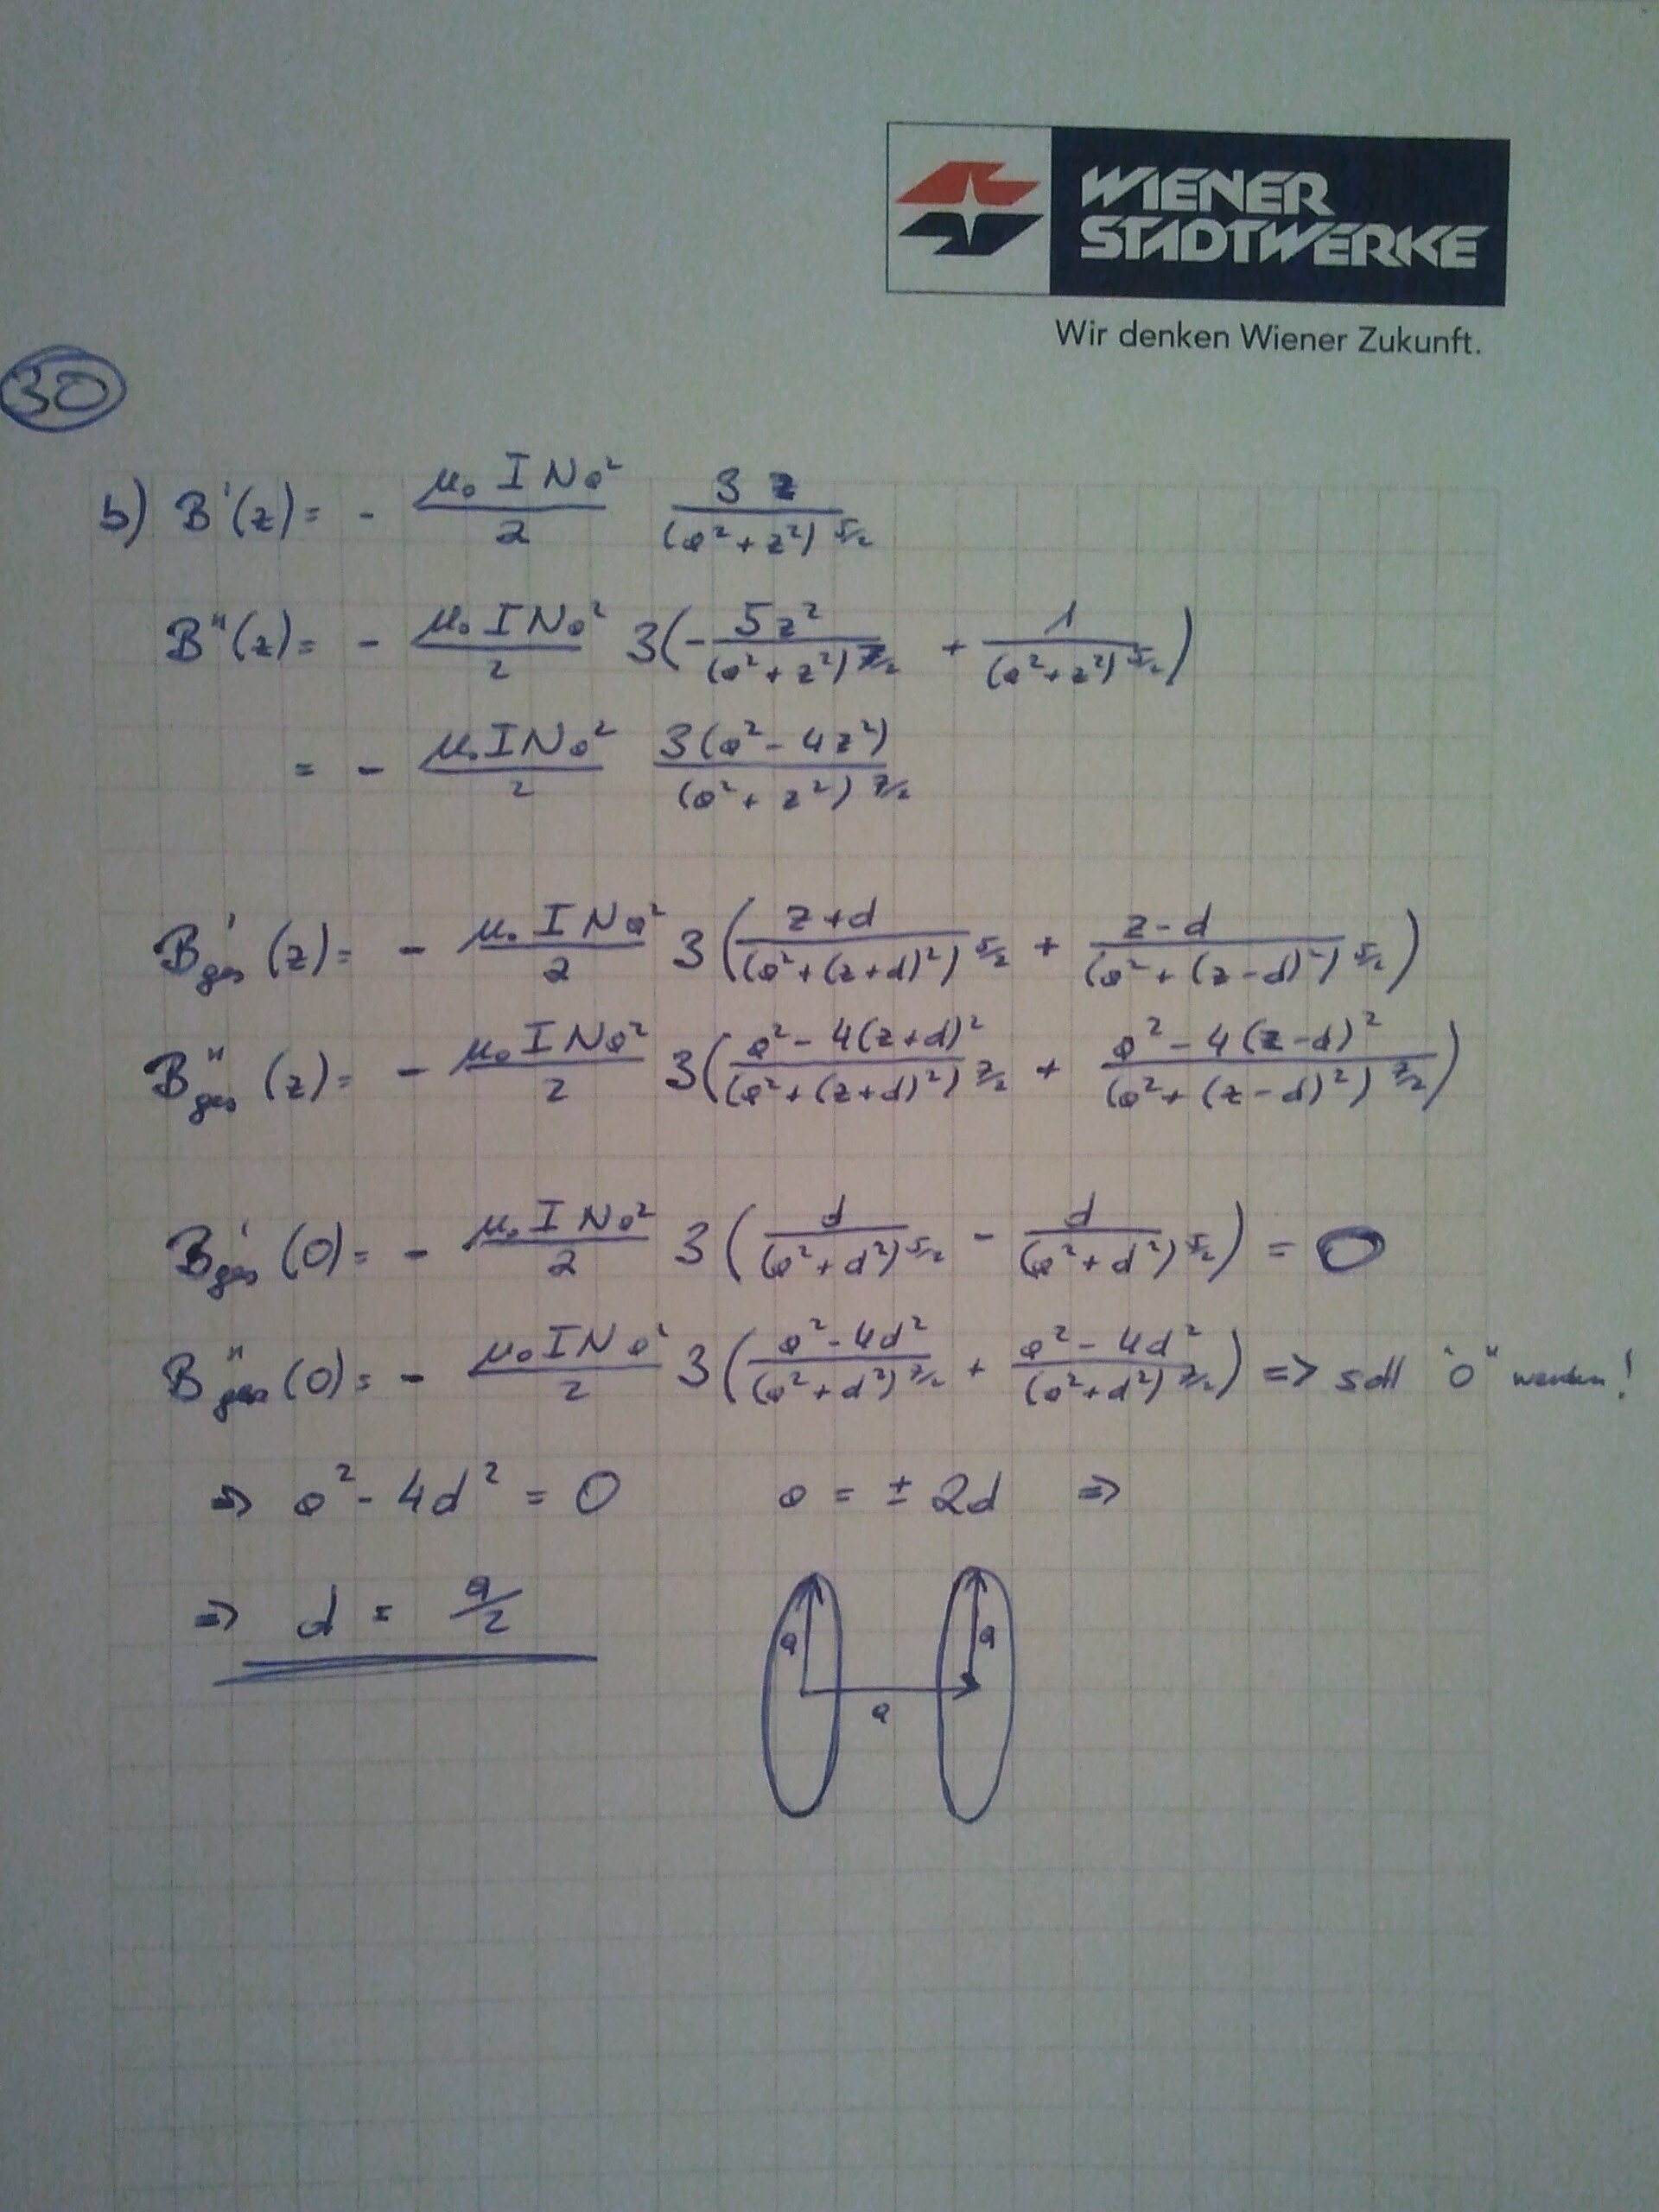 WIENER
STADTWERKE
Wir denken Wiener Zukunft.
30
b) B'(z) = - μ₀ I N a²/2 3z/(a²+z²)^5/2
B"(z) = - μ₀ I N a²/2 3(- 5z²/(a²+z²)^7/2 + 1/(a²+z²)^5/2)
= - μ₀ I N a²/2 3(a² - 4z²)/(a²+z²)^7/2
B'ges (z) = - μ₀ I N a²/2 3( z+d/(a²+(z+d)²)^5/2 + z-d/(a²+(z-d)²)^5/2 )
B"ges (z) = - μ₀ I N a²/2 3( a² - 4(z+d)²/(a²+(z+d)²)^7/2 + a² - 4(z-d)²/(a²+(z-d)²)^7/2 )
B'ges (0) = - μ₀ I N a²/2 3( d/(a²+d²)^5/2 - d/(a²+d²)^5/2 ) = 0
B"ges (0) = - μ₀ I N a²/2 3( a² - 4d²/(a²+d²)^7/2 + a² - 4d²/(a²+d²)^7/2 ) => soll "0" werden!
=> a² - 4d² = 0 a = ± 2d =>
=> d = a/2
a a
a